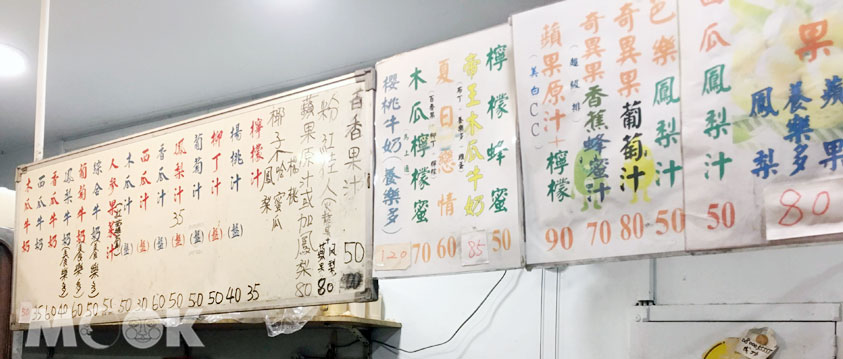 果
蘋果
養樂多
鳳梨
80
芭樂鳳梨汁
50
西瓜鳳梨汁
50
奇異果葡萄汁
80
奇異果香蕉蜂蜜汁
70
蘋果原汁+檸檬
(美白CC)
90
檸檬蜂蜜
50
帝王木瓜牛奶
85
夏日戀情
60
木瓜檸檬蜜
70
櫻桃牛奶(養樂多)
120
百香果汁
50
粉紅佳人
鳳梨
蘋果
80
蘋果原汁或加鳳梨
80
椰子水
哈蜜瓜
鳳梨
檸檬汁
35
楊桃汁(鹽)
40
柳丁汁(鹽)
50
葡萄汁(鹽)
50
鳳梨汁
35
(鹽)
50
香瓜汁(鹽)
60
西瓜汁(鹽)
30
木瓜汁
50
人參果菜汁
綜合牛奶(養樂多)
50
葡萄牛奶(養樂多)
60
鳳梨牛奶(養樂多)
40
香瓜牛奶
60
西瓜牛奶
35
木瓜牛奶
50
MOOK